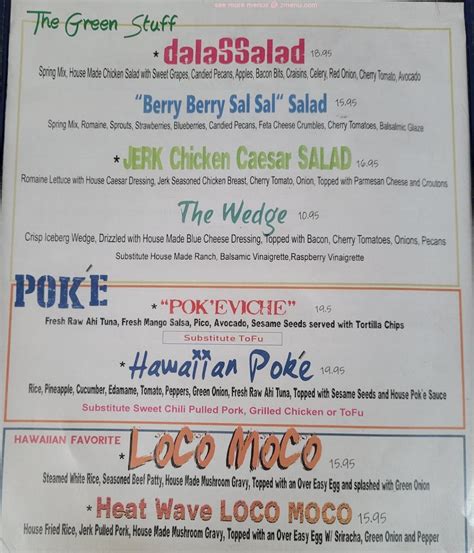 see more menus @ zmenu.com
The Green Stuff
* dalaSSalad 18.95
Spring Mix, House Made Chicken Salad with Sweet Grapes, Candied Pecans, Apples, Bacon Bits, Craisins, Celery, Red Onion, Cherry Tomato, Avocado
"Berry Berry Sal Sal" Salad 15.95
Spring Mix, Romaine, Sprouts, Strawberries, Blueberries, Candied Pecans, Feta Cheese Crumbles, Cherry Tomatoes, Balsalmic Glaze
* JERK Chicken Caesar SALAD 16.95
Romaine Lettuce with House Caesar Dressing, Jerk Seasoned Chicken Breast, Cherry Tomato, Onion, Topped with Parmesan Cheese and Croutons
The Wedge 10.95
Crisp Iceberg Wedge, Drizzled with House Made Blue Cheese Dressing, Topped with Bacon, Cherry Tomatoes, Onions, Pecans
Substitute House Made Ranch, Balsamic Vinaigrette,Raspberry Vinaigrette
POK'E
* "POK'EVICHE" 19.5
Fresh Raw Ahi Tuna, Fresh Mango Salsa, Pico, Avocado, Sesame Seeds served with Tortilla Chips
Substitute ToFu
* Hawaiian Pok'e 19.95
Rice, Pineapple, Cucumber, Edamame, Tomato, Peppers, Green Onion, Fresh Raw Ahi Tuna, Topped with Sesame Seeds and House Pok'e Sauce
Substitute Sweet Chili Pulled Pork, Grilled Chicken or ToFu
HAWAIIAN FAVORITE
* LOCO MOCO 15.95
Steamed White Rice, Seasoned Beef Patty, House Made Mushroom Gravy, Topped with an Over Easy Egg and splashed with Green Onion
* Heat Wave LOCO MOCO 15.95
House Fried Rice, Jerk Pulled Pork, House Made Mushroom Gravy, Topped with an Over Easy Egg W/ Sriracha, Green Onion and Pepper